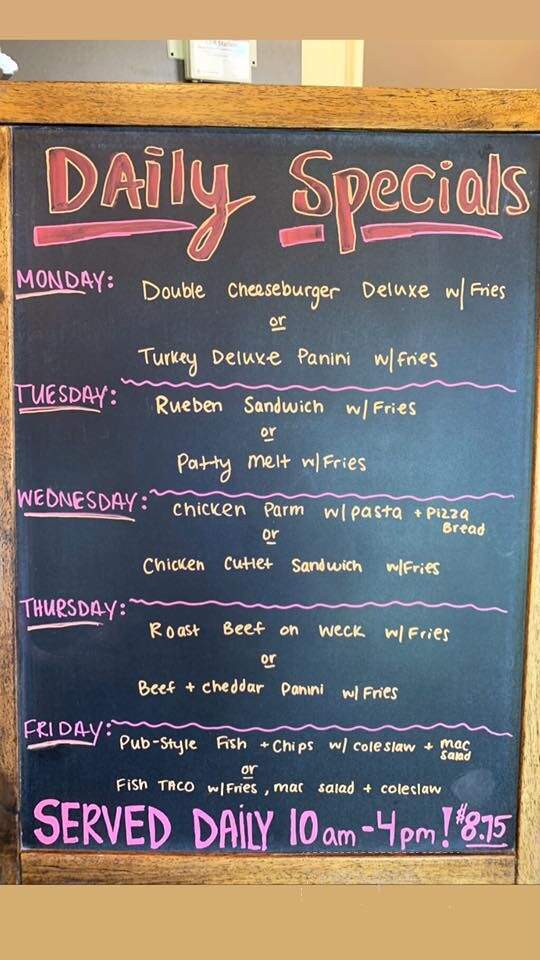 Daily Specials
MONDAY: Double Cheeseburger Deluxe w/ Fries
or
Turkey Deluxe Panini w/fries
TUESDAY: Rueben Sandwich w/ Fries
or
Patty Melt w/ Fries
WEDNESDAY: Chicken Parm w/ pasta + Pizza
Bread
or
Chicken Cutlet Sandwich w/Fries
THURSDAY: Roast Beef on Weck w/ Fries
or
Beef + Cheddar Panini w/ Fries
FRIDAY: Pub-Style Fish + Chips w/ coleslaw + mac
Salad
or
Fish TACO w/Fries, mac salad + coleslaw
SERVED DAILY 10am-4pm! $8.75